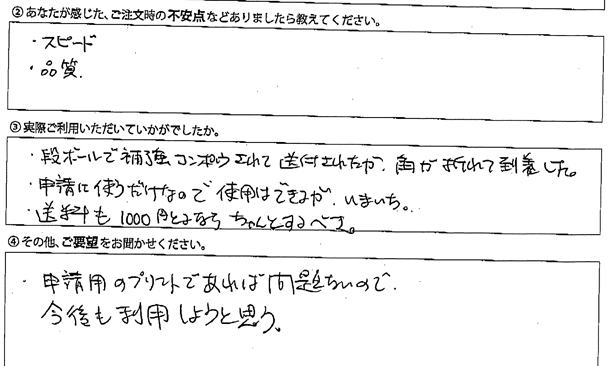 ②あなたが感じた、ご注文時の不安点などありましたら教えてください。
・スピード
・品質.
③実際ご利用いただいていかがでしたか。
・段ボールで補強コンポウされて送付されたが、角が折れて到着した。
・申請に使うだけなので使用はできるが、いまいち。
・送料も1000円とるなら ちゃんとするべき。
④その他、ご要望をお聞かせください。
・申請用のプリントであれば問題ないので、
今後も利用しようと思う。